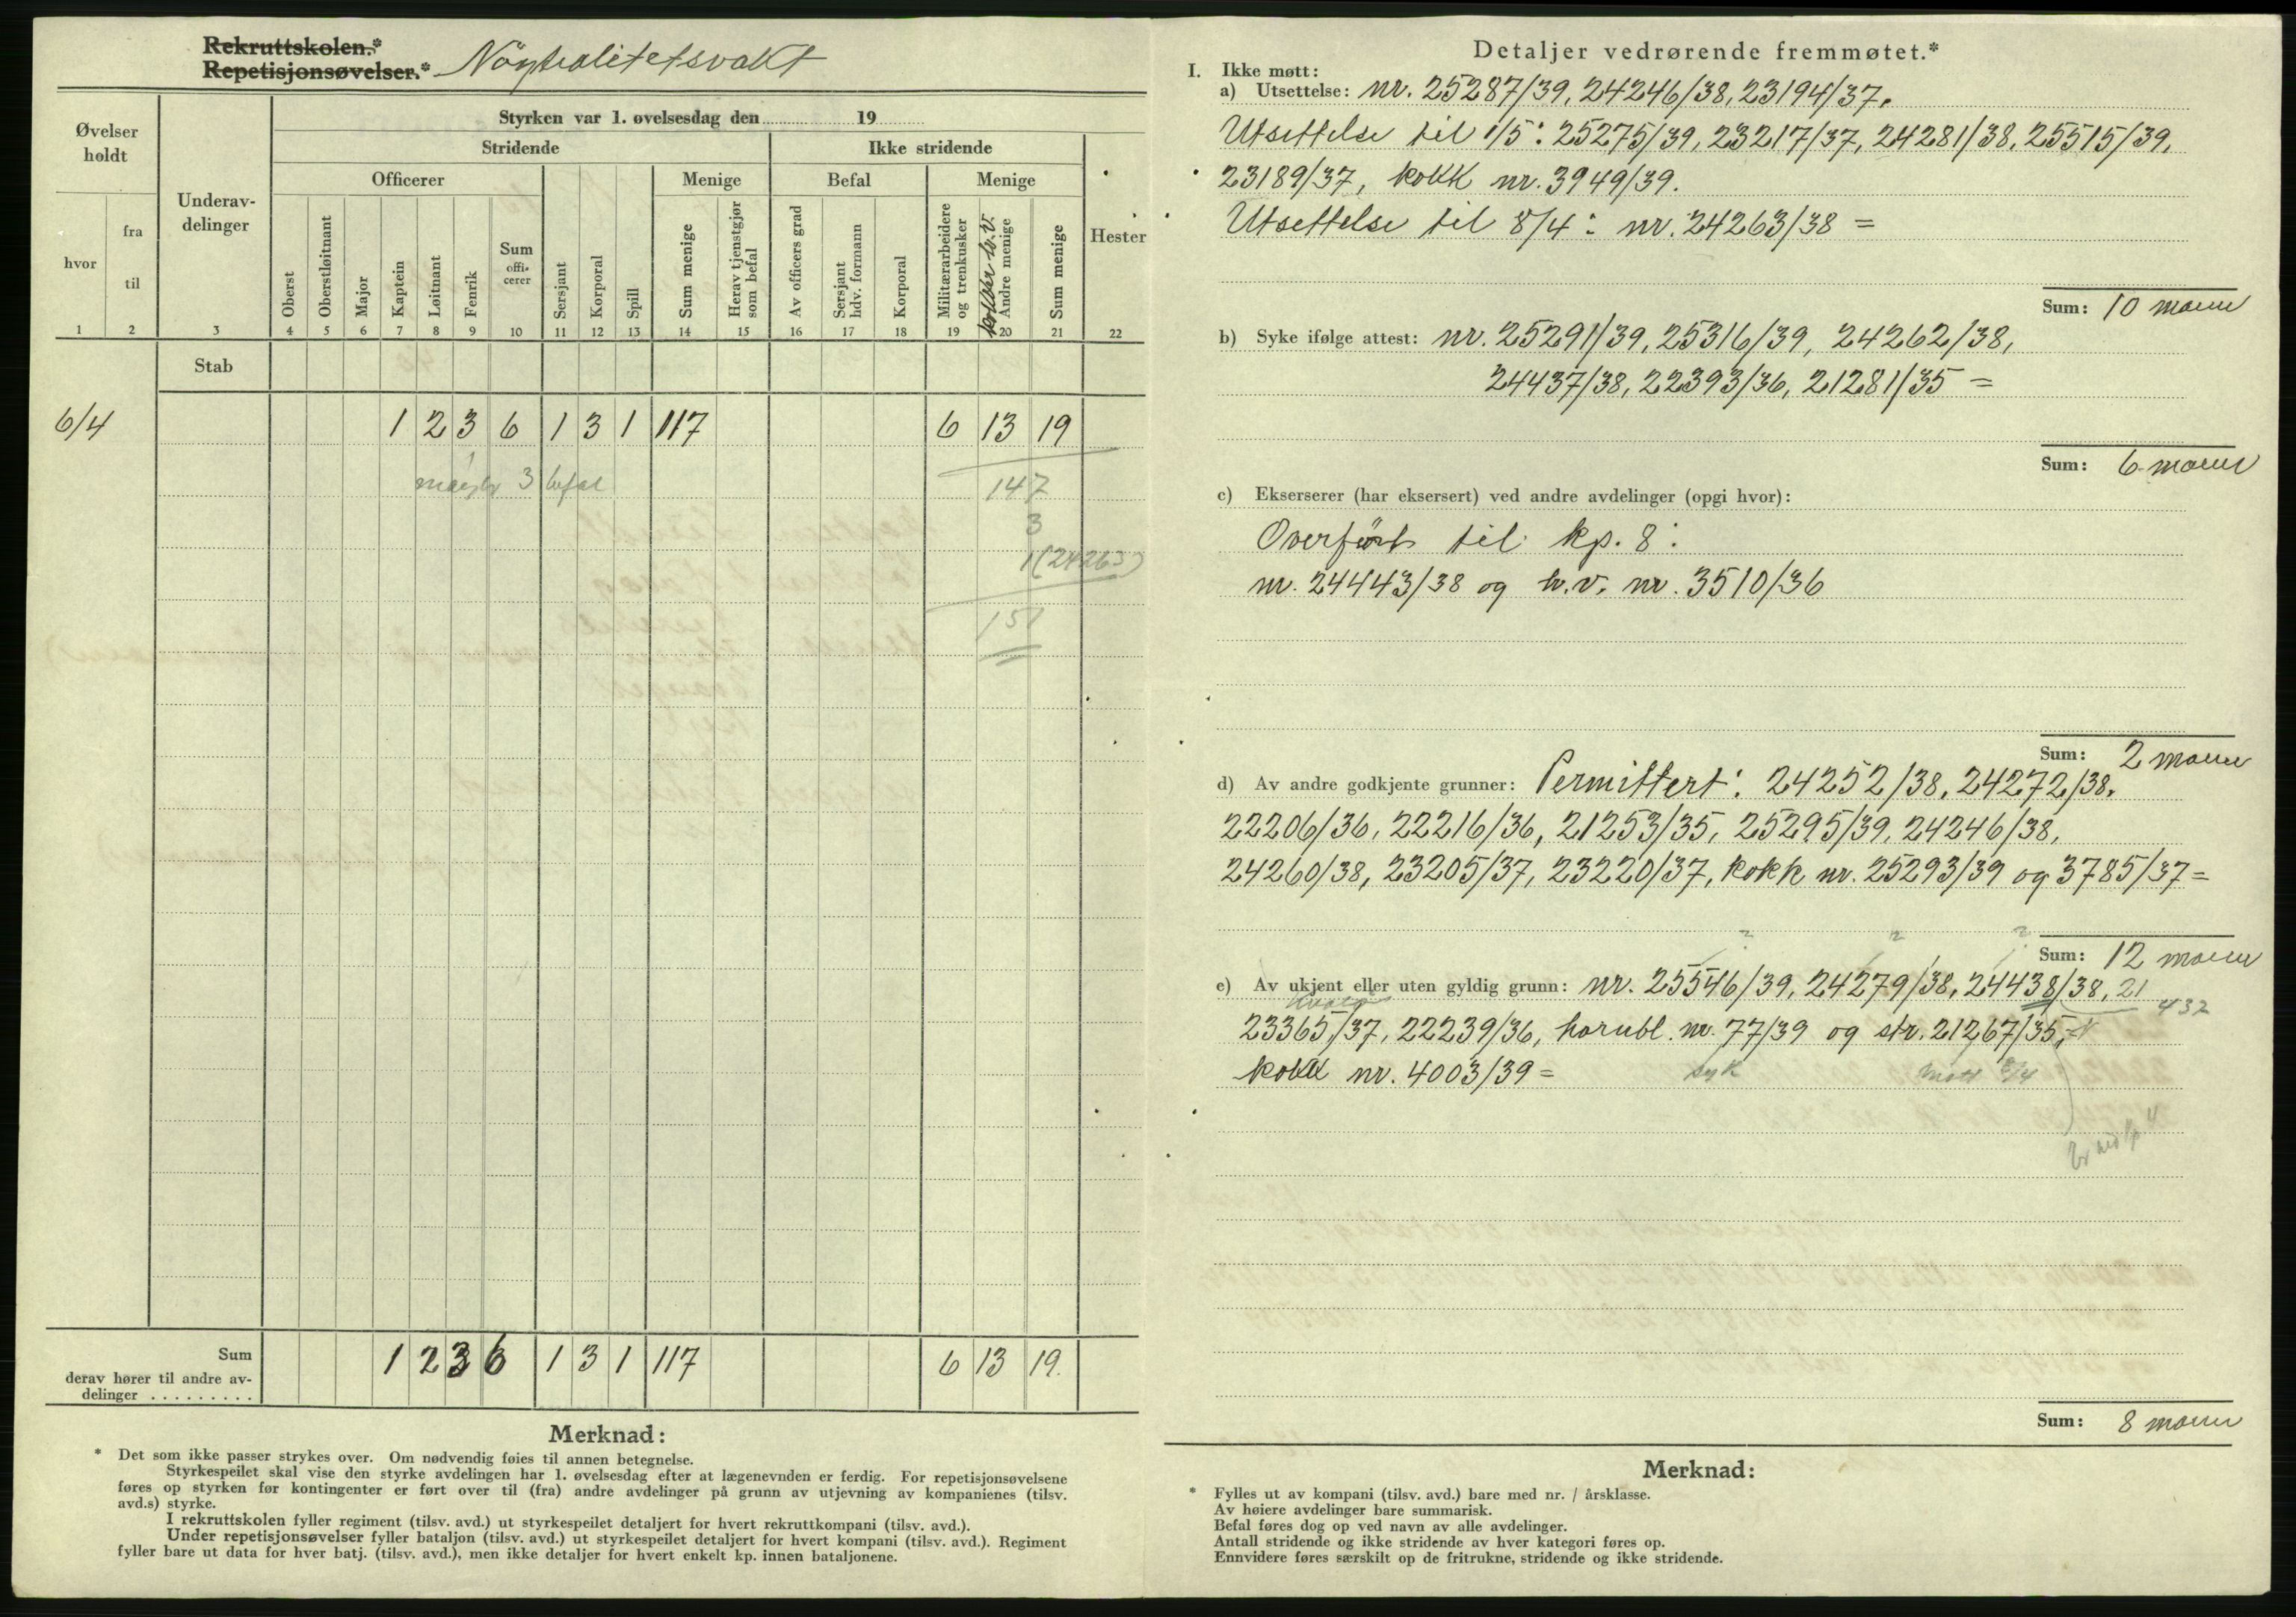 Rekruttskolen.*
Repetisjonsøvelser.* Nöytralitetsvakt
Øvelser holdt
Styrken var 1. øvelsesdag den 19
Stridende
Ikke stridende
Officerer
Menige
Befal
Menige
hvor
fra
til
Underav-
delinger
Oberst
Oberstløitnant
Major
Kaptein
Løitnant
Fenrik
Sum
offi-
cerer
Sersjant
Korporal
Spill
Sum menige
Herav tjenstgjør
som befal
Av officers grad
Sersjant
hdv. formann
Korporal
Militærarbeidere
og trenkusker
Andre menige
Sum menige
Hester
1 2 3 4 5 6 7 8 9 10 11 12 13 14 15 16 17 18 19 20 21 22
Stab
6/4 1 2 3 6 1 3 1 117 6 13 19
3 befal 147
3
1 (24263)
151
Sum 1 2 3 6 1 3 1 117 6 13 19.
derav hører til andre av-
delinger . . . . . . . . .
Merknad:
* Det som ikke passer strykes over. Om nødvendig føies til annen betegnelse.
Styrkespeilet skal vise den styrke avdelingen har 1. øvelsesdag efter at lægenevnden er ferdig. For repetisjonsøvelsene
føres op styrken før kontingenter er ført over til (fra) andre avdelinger på grunn av utjevning av kompanienes (tilsv.
avd.s) styrke.
I rekruttskolen fyller regiment (tilsv. avd.) ut styrkespeilet detaljert for hvert rekruttkompani (tilsv. avd.).
Under repetisjonsøvelser fyller bataljon (tilsv. avd.) ut styrkespeilet detaljert for hvert kompani (tilsv. avd.). Regiment
fyller bare ut data for hver batj. (tilsv. avd.), men ikke detaljer for hvert enkelt kp. innen bataljonene.
Detaljer vedrørende fremmøtet.*
I. Ikke møtt:
a) Utsettelse: nr. 25287/39, 24246/38, 23194/37.
Utsettelse til 1/5: 25275/39, 23217/37, 24281/38, 25515/39,
23189/37, kokk nr. 3949/39.
Utsettelse til 8/4: nr. 24263/38 =
Sum: 10 mann
b) Syke ifølge attest: nr. 25291/39, 25316/39, 24262/38,
24437/38, 22393/36, 21281/35 =
Sum: 6 mann
c) Ekserserer (har eksersert) ved andre avdelinger (opgi hvor):
Overført til kp. 8:
nr. 24443/38 og h.v. nr. 3510/36
Sum: 2 mann
d) Av andre godkjente grunner: Permittert: 24252/38, 24272/38,
22206/36, 22216/36, 21253/35, 25295/39, 24246/38,
24260/38, 23205/37, 23220/37, kokk nr. 25293/39 og 3785/37 =
Sum: 12 mann
e) Av ukjent eller uten gyldig grunn: nr. 25546/39, 24279/38, 24438/38, 21
432
23365/37, 22239/36, hornbl. nr. 77/39 og str. 21267/35,
kokk nr. 4003/39 = syk møtt 8/4
Sum: 8 mann
Merknad:
* Fylles ut av kompani (tilsv. avd.) bare med nr. / årsklasse.
Av høiere avdelinger bare summarisk.
Befal føres dog op ved navn av alle avdelinger.
Antall stridende og ikke stridende av hver kategori føres op.
Ennvidere føres særskilt op de fritrukne, stridende og ikke stridende.